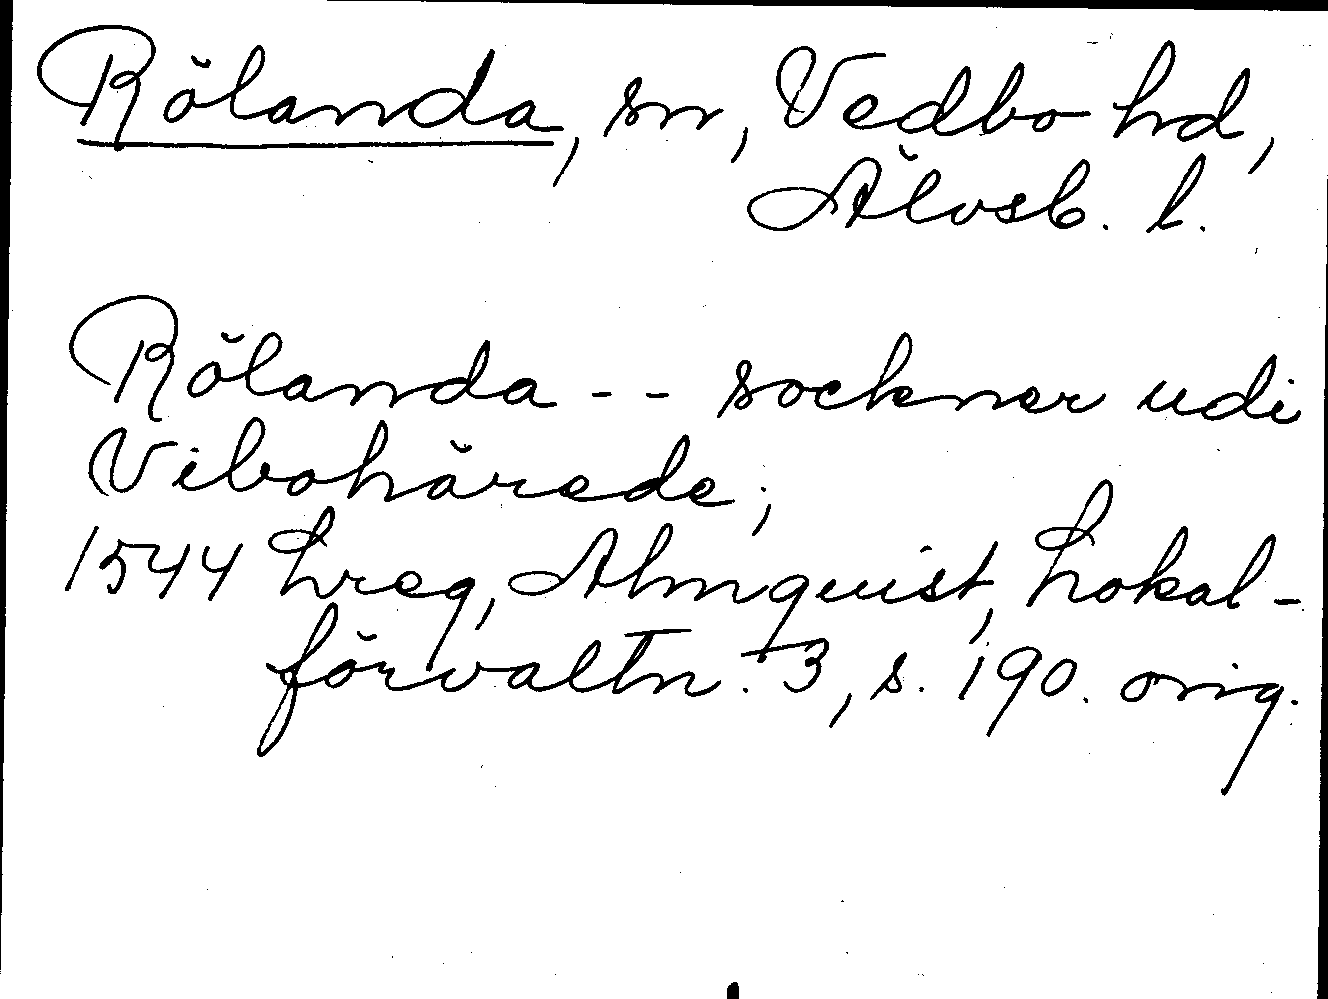 Rölanda, sn, Vedbo hd,
Älvsb. l.
Rölanda -- sockner udi
Vibohärede;
1544 Lreg, Almquist, Lokal-
förvaltn. 3, s. 190. orig.